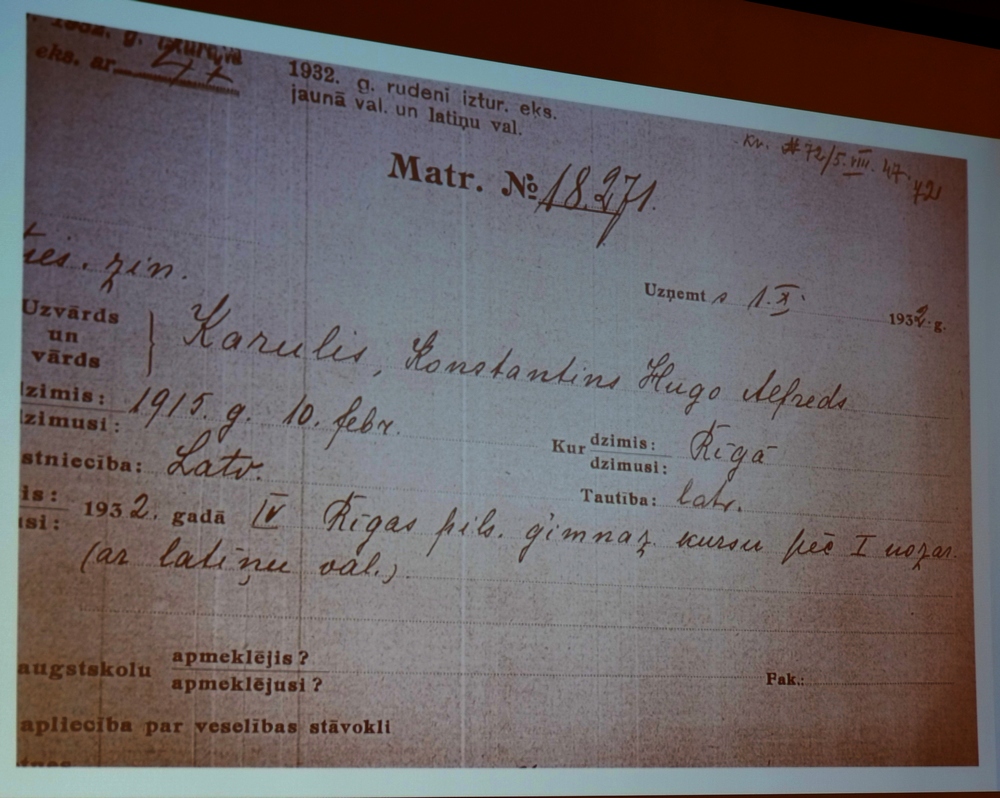 eks. ar 47
1932. g. rudenī iztur. eks.
jaunā val. un latiņu val.
Kr. # 72/5. VIII. 47. 42
Matr. № 18.271.
ties. zin.
Uzņemts 1. X. 1932. g.
Uzvārds
un
vārds } Karulis, Konstantins Hugo Alfreds
dzimis:
dzimusi: 1915. g. 10. febr.
Kur dzimis:
dzimusi: Rīgā
stniecība: Latv.
Tautība: latv.
is:
usi: 1932. gadā IV Rīgas pils. ģimnaz. kursu pēc I nozar.
(ar latiņu val.)
augstskolu apmeklējis?
apmeklējusi?
Fak.:
apliecība par veselības stāvokli